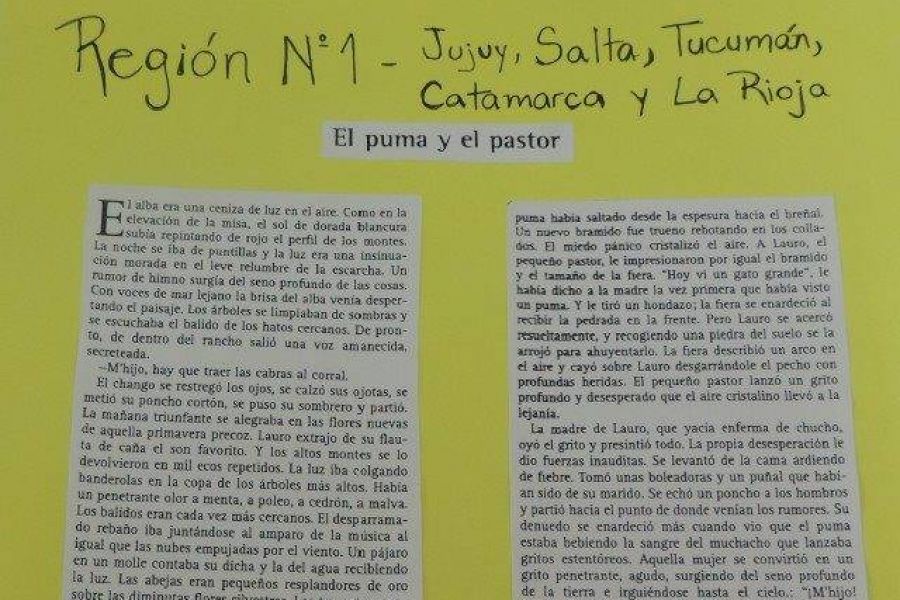 Región N°1 - Jujuy, Salta, Tucumán,
Catamarca y La Rioja
El puma y el pastor
El alba era una ceniza de luz en el aire. Como en la
elevación de la misa, el sol de dorada blancura
subía repintando de rojo el perfil de los montes.
La noche se iba de puntillas y la luz era una insinua-
ción morada en el leve relumbre de la escarcha. Un
rumor de himno surgía del seno profundo de las cosas.
Con voces de mar lejano la brisa del alba venía desper-
tando el paisaje. Los árboles se limpiaban de sombras y
se escuchaba el balido de los hatos cercanos. De pron-
to, de dentro del rancho salió una voz amanecida,
secreteada.
–M'hijo, hay que traer las cabras al corral.
El chango se restregó los ojos, se calzó sus ojotas, se
metió su poncho cortón, se puso su sombrero y partió.
La mañana triunfante se alegraba en las flores nuevas
de aquella primavera precoz. Lauro extrajo de su flau-
ta de caña el son favorito. Y los altos montes se lo
devolvieron en mil ecos repetidos. La luz iba colgando
banderolas en la copa de los árboles más altos. Había
un penetrante olor a menta, a poleo, a cedrón, a malva.
Los balidos eran cada vez más cercanos. El desparrama-
do rebaño iba juntándose al amparo de la música al
igual que las nubes empujadas por el viento. Un pájaro
en un molle contaba su dicha y la del agua recibiendo
la luz. Las abejas eran pequeños resplandores de oro
sobre las diminutas flores silvestres.
puma había saltado desde la espesura hacia el breñal.
Un nuevo bramido fue trueno rebotando en los colla-
dos. El miedo pánico cristalizó el aire. A Lauro, el
pequeño pastor, le impresionaron por igual el bramido
y el tamaño de la fiera. "Hoy vi un gato grande", le
había dicho a la madre la vez primera que había visto
un puma. Y le tiró un hondazo; la fiera se enardeció al
recibir la pedrada en la frente. Pero Lauro se acercó
resueltamente, y recogiendo una piedra del suelo se la
arrojó para ahuyentarlo. La fiera describió un arco en
el aire y cayó sobre Lauro desgarrándole el pecho con
profundas heridas. El pequeño pastor lanzó un grito
profundo y desesperado que el aire cristalino llevó a la
lejanía.
La madre de Lauro, que yacía enferma de chucho,
oyó el grito y presintió todo. La propia desesperación le
dio fuerzas inauditas. Se levantó de la cama ardiendo
de fiebre. Tomó unas boleadoras y un puñal que habí-
an sido de su marido. Se echó un poncho a los hombros
y partió hacia el punto de donde venían los rumores. Su
denuedo se enardeció más cuando vio que el puma
estaba bebiendo la sangre del muchacho que lanzaba
gritos estentóreos. Aquella mujer se convirtió en un
grito penetrante, agudo, surgiendo del seno profundo
de la tierra e irguiéndose hasta el cielo.: "¡M'hijo!